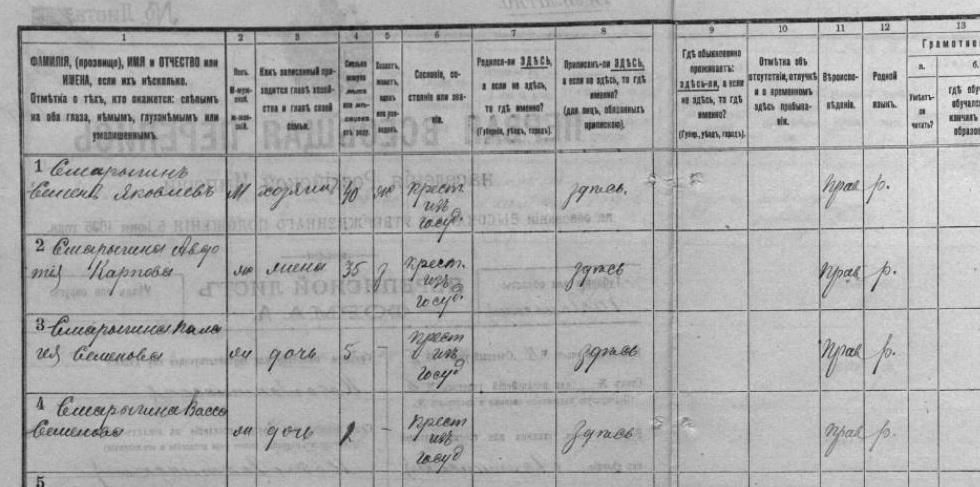 1
2
3
4
5
6
7
8
9
10
11
12
13
Грамотно
ФАМИЛІЯ, (прозвище), ИМЯ и ОТЧЕСТВО или
ИМЕНА, если ихъ нѣсколько.
Отмѣтка о тѣхъ, кто окажется: слѣпымъ
на оба глаза, нѣмымъ, глухонѣмымъ или
умалишеннымъ.
Полъ.
Какъ записанный при-
ходится главѣ хозяй-
ства и главѣ своей
семьи.
Сословіе, со-
стояніе или зва-
ніе.
Родился-ли ЗДѢСЬ,
а если не здѣсь,
то гдѣ именно?
(Губернія, уѣздъ, городъ).
Приписанъ-ли ЗДѢСЬ,
а если не здѣсь, то гдѣ
именно?
(для лицъ, обязанныхъ
припискою).
Гдѣ обыкновенно
проживаетъ:
здѣсь-ли, а если
не здѣсь, то гдѣ
именно?
(Губер., уѣздъ, городъ).
Отмѣтка объ
отсутствіи, отлучкѣ
и о временномъ
здѣсь пребыва-
ніи.
Вѣроиспо-
вѣданіе.
Родной
языкъ.
а.
Умѣетъ-
ли
читать?
б.
1 Смарыгинъ
Семенъ Яковлевъ м хозяинъ 40 же крест здѣсь. Прав р.
изъ
госуд.
2 Смарыгина Авдо
тія Карпова же жена 35 крест. здѣсь Прав р.
изъ
госуд.
3 Смарыгина Пала
гея Семенова же дочь 5 - крест здѣсь Прав р.
изъ
госуд
4 Смарыгина Васса
Семенова же дочь - крест здѣсь Прав р.
изъ
госуд
5